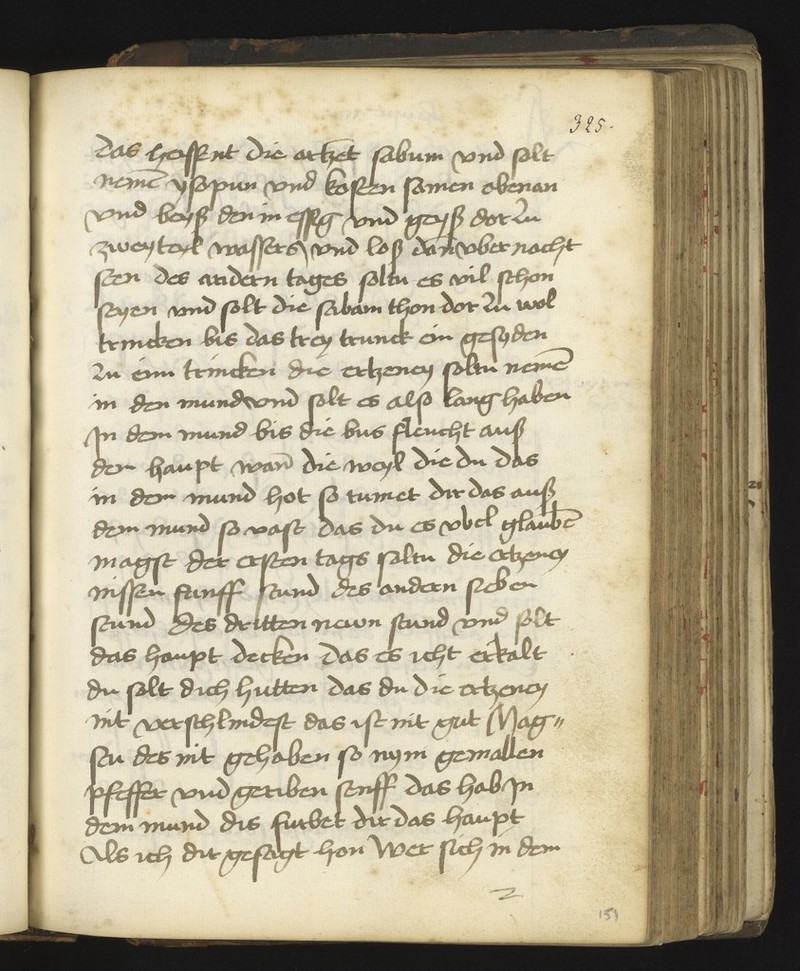 325.
das heissent die artzet sabum vnd solt
nemē ysopun vnd kosten somen obenan
vnd beyß den in essig vnd geyß dor zu
zwey teyl wassers vnd loß dan vber nacht
sten des andern tages soltu es vil schon
seyen vnd solt die sabam thon dor zu wol
trincken bis das trey trunck ein gesyden
zu eim trincken die ertzeney soltu nemē
in den mund vnd solt es also lang haben
Jn dem mund bis die bus fleucht auß
dem haupt wañ die weyl die du das
in dem mund hot so rumet dir das auß
dem mund so vast das du es vbel glaubē
magst der ersten tags soltu die ertzeney
nissen funff stund des andern sieben
stund des dritten newn stund vnd solt
das haupt decken das es icht erkalt
du solt dich hutten das du die ertzeney
nit verschlindest das ist nit gut Mag〃
stu des nit gehaben so nym gemallen
pfeffer vnd geriben senff das hab Jn
dem mund dis furbet dir das haupt
Als ich dir gesagt hon Wer sich in dem
151